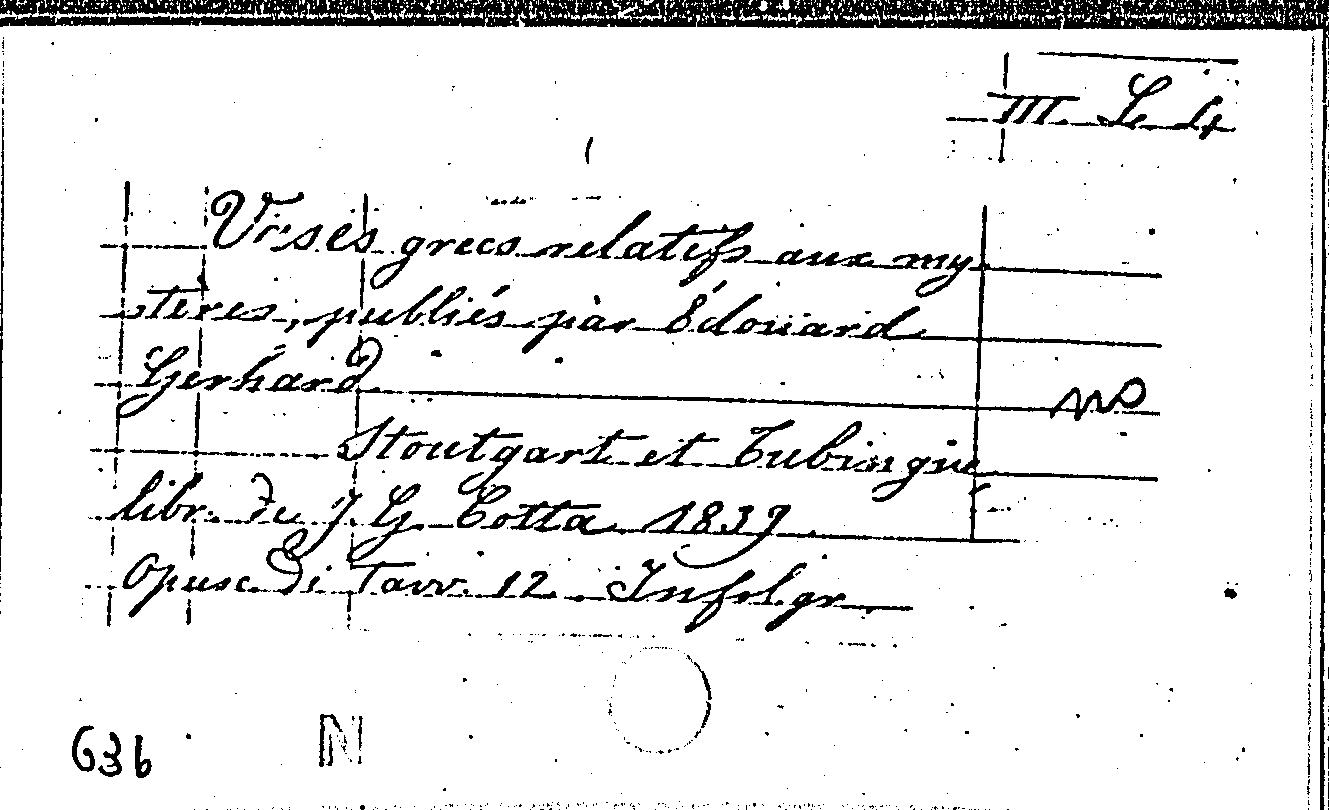 III. L. 4
Vases grecs relatifs aux my
stères, publiés par Édouard
Gerhard
no
Stoutgart et Tubingue
libr. de J. G. Cotta 1839
Opusc. di Tavv. 12. In fol. gr.
636
N